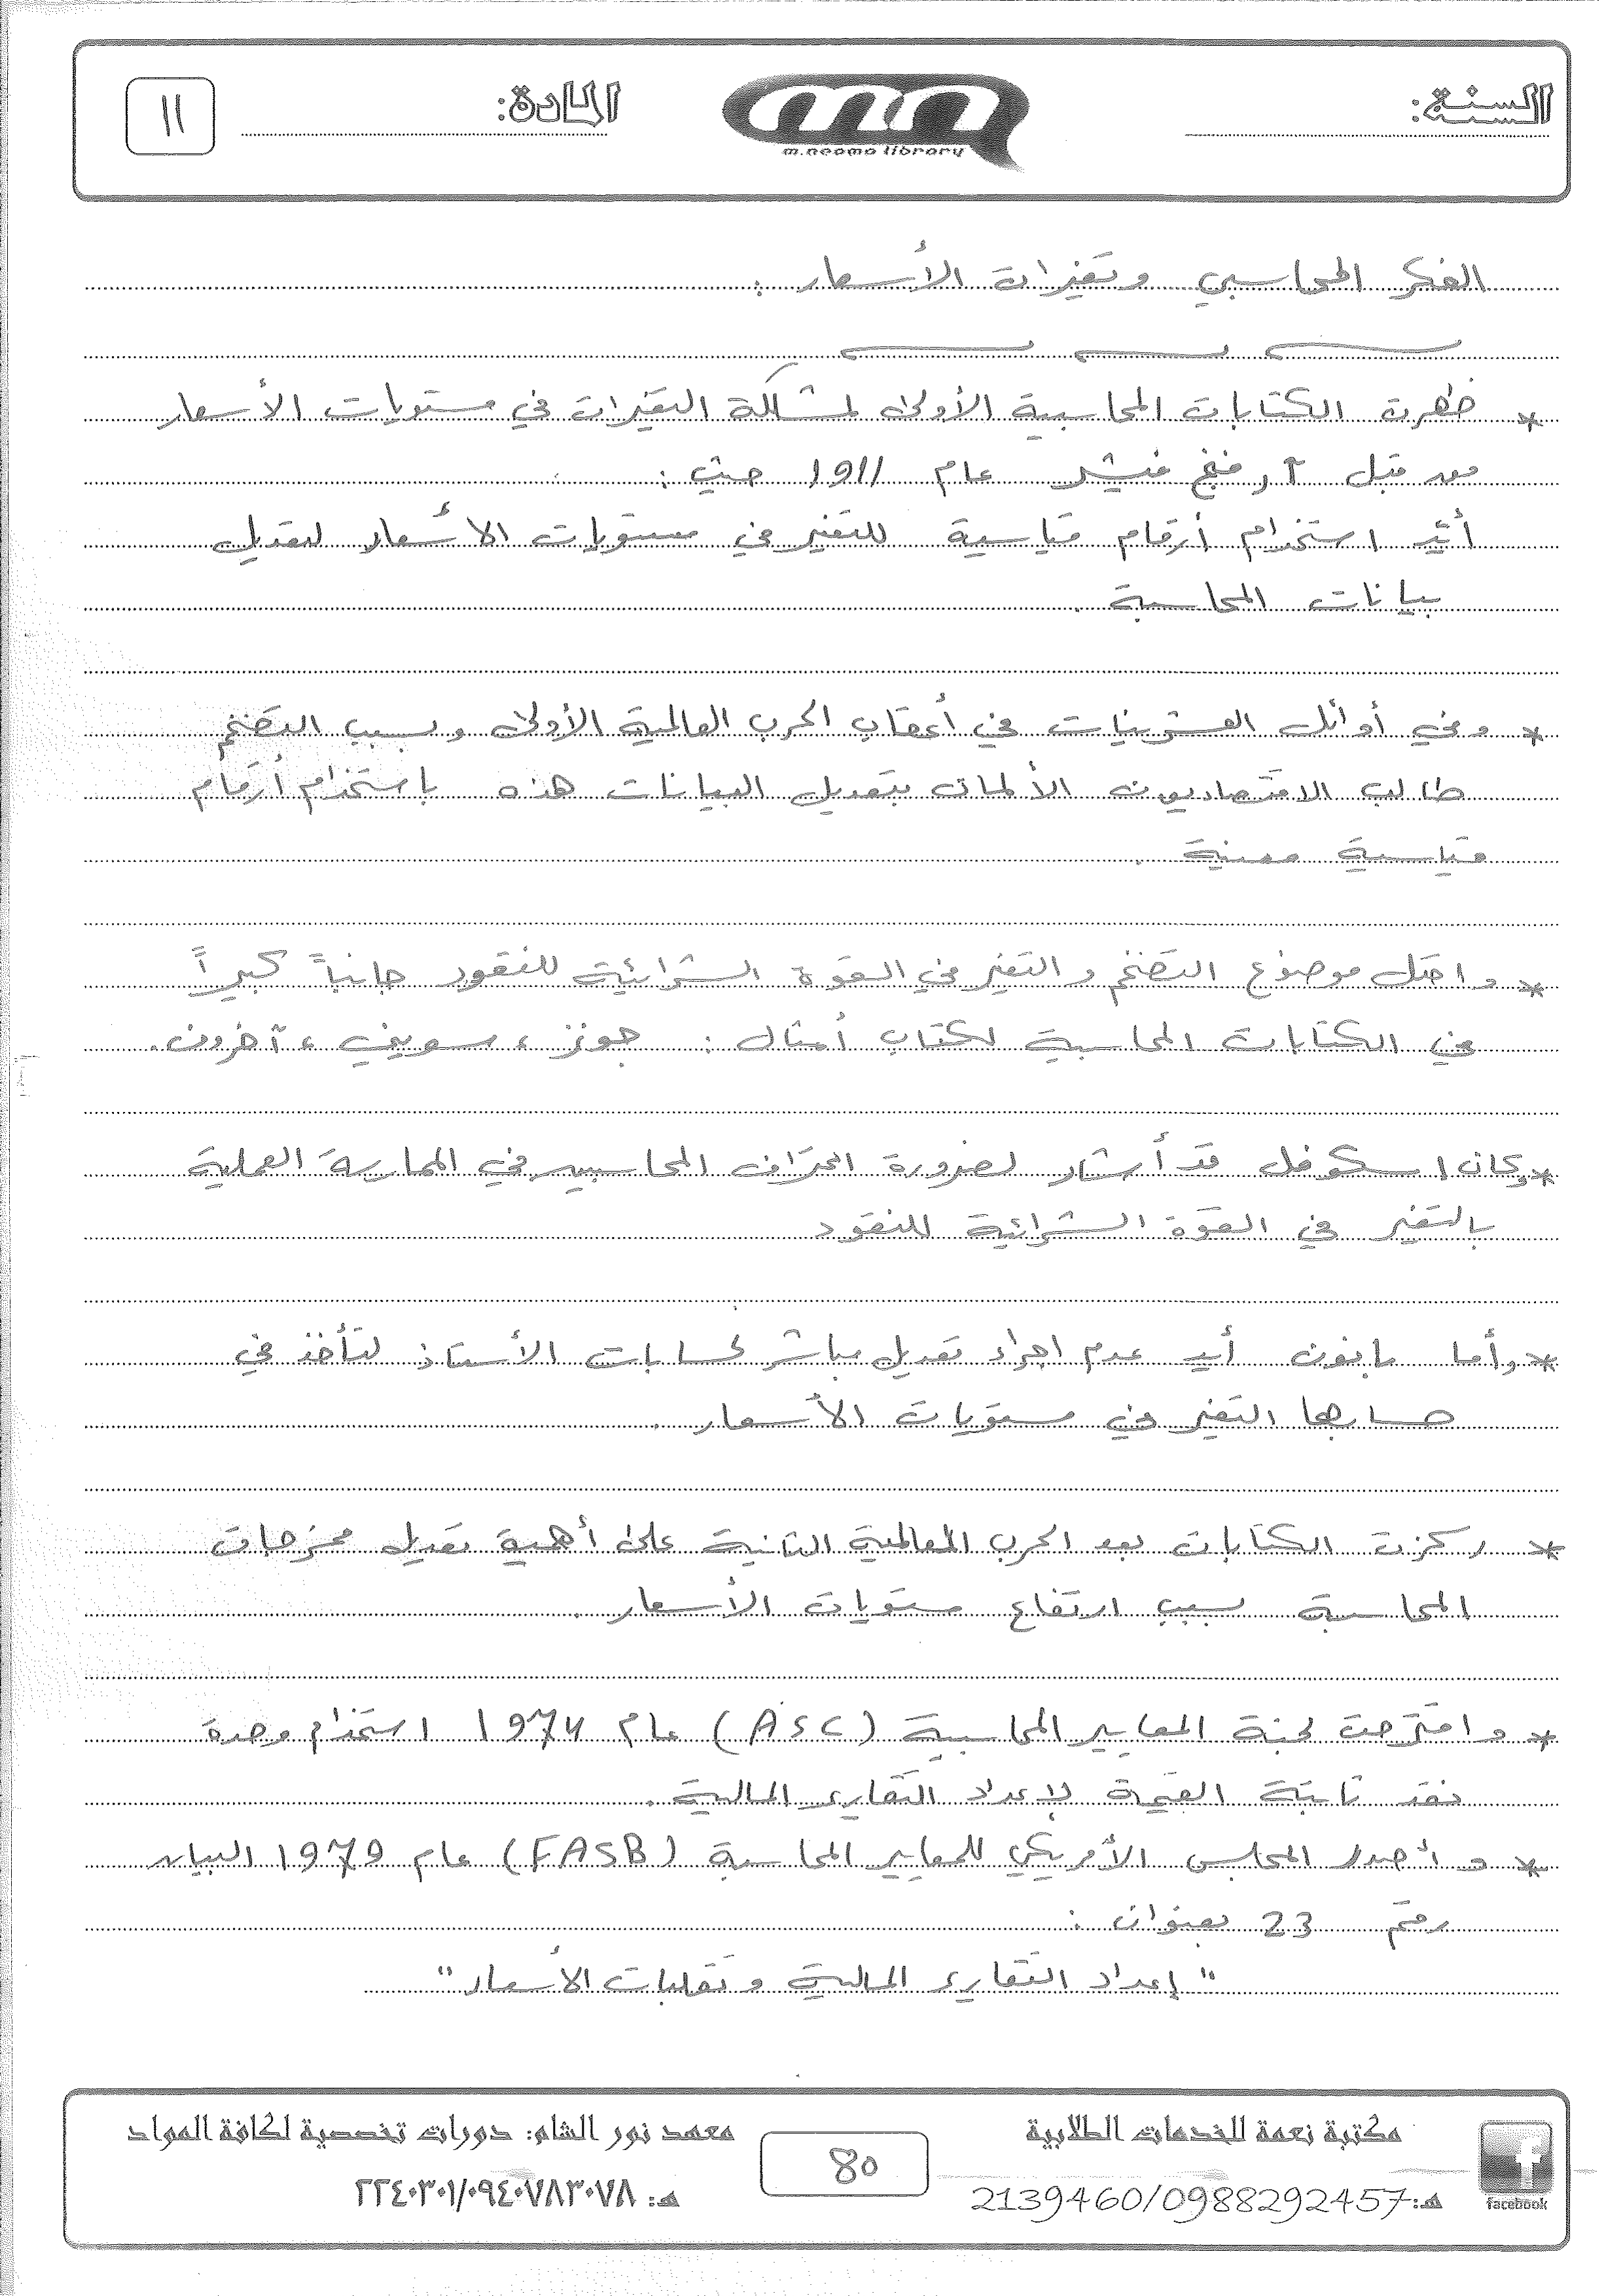 السنة:
m.neama library
المادة:
11
الفكر المحاسبي وتغيرات الأسعار :
* ظهرت الكتابات المحاسبية الأولى لمشكلة التغيرات في مستويات الأسعار
من قبل آرفنج فيشر عام 1911 حيث :
أيّد استخدام أرقام قياسية للتغير في مستويات الأسعار لتعديل
بيانات المحاسبة .
* وفي أوائل العشرينيات في أعقاب الحرب العالمية الأولى وبسبب التضخم
طالب الاقتصاديون الألمان بتعديل البيانات هذه باستخدام أرقام
قياسية معينة .
* واحتل موضوع التضخم والتغير في القوة الشرائية للنقود جانباً كبيراً
في الكتابات المحاسبية لكتاب أمثال : جونز ، سويني ، آخرون .
* وكان اسكوفل قد أشار لضرورة اعتراف المحاسبين في الممارسة العملية
بالتغير في القوة الشرائية للنقود
* وأما باتون أيد عدم اجراء تعديل مباشر لحسابات الأستاذ لتأخذ في
حسابها التغير في مستويات الأسعار .
* ركزت الكتابات بعد الحرب العالمية الثانية على أهمية تعديل مخرجات
المحاسبة بسبب ارتفاع مستويات الأسعار .
* واقترحت لجنة المعايير المحاسبية (ASC) عام 1974 استخدام وحدة
نقد ثابتة القيمة لإعداد التقارير المالية .
* وأصدر المجلس الأمريكي للمعايير المحاسبة (FASB) عام 1979 البيان
رقم 23 بعنوان :
" إعداد التقارير المالية وتقلبات الأسعار "
مكتبة نعمة للخدمات الطلابية
هـ: 2139460/0988292457
facebook
80
معهد نور الشام: دورات تخصصية لكافة المواد
هـ: ٢٢٤٠٣٠١/٠٩٤٠٧٨٣٠٧٨